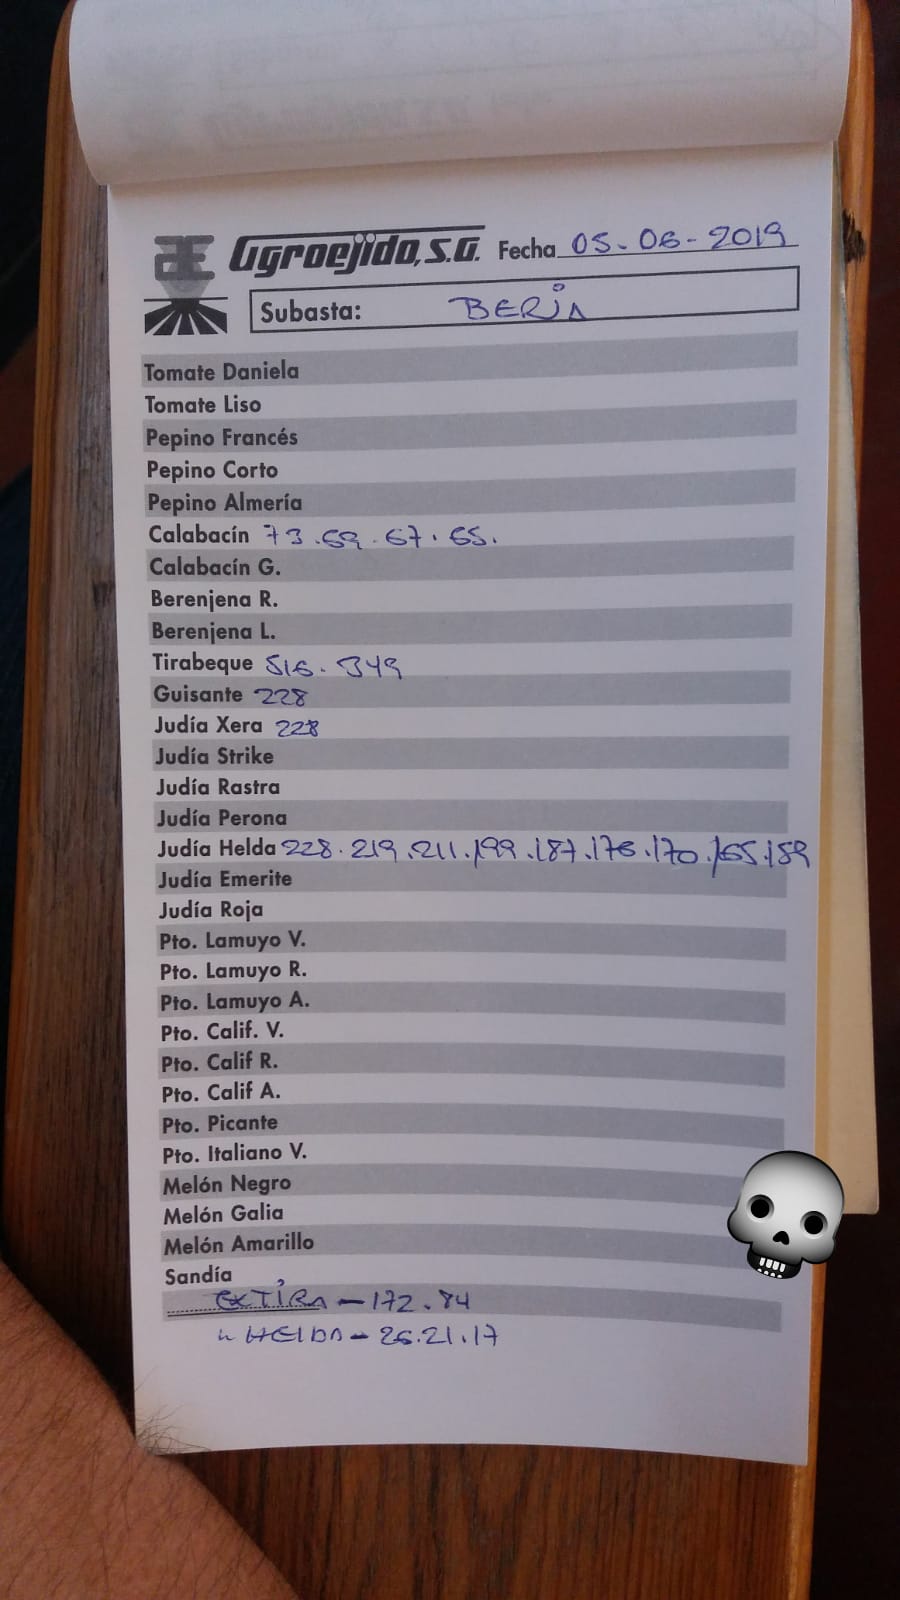 Agroejido, S.A. Fecha 05-06-2019
Subasta: BERJA
Tomate Daniela
Tomate Liso
Pepino Francés
Pepino Corto
Pepino Almería
Calabacín 73.69.67.65.
Calabacín G.
Berenjena R.
Berenjena L.
Tirabeque 516.349
Guisante 228
Judía Xera 228
Judía Strike
Judía Rastra
Judía Perona
Judía Helda 228.219.211.199.187.176.170.165.159
Judía Emerite
Judía Roja
Pto. Lamuyo V.
Pto. Lamuyo R.
Pto. Lamuyo A.
Pto. Calif. V.
Pto. Calif R.
Pto. Calif A.
Pto. Picante
Pto. Italiano V.
Melón Negro
Melón Galia
Melón Amarillo
Sandía
172.84
HELDA - 26.21.17